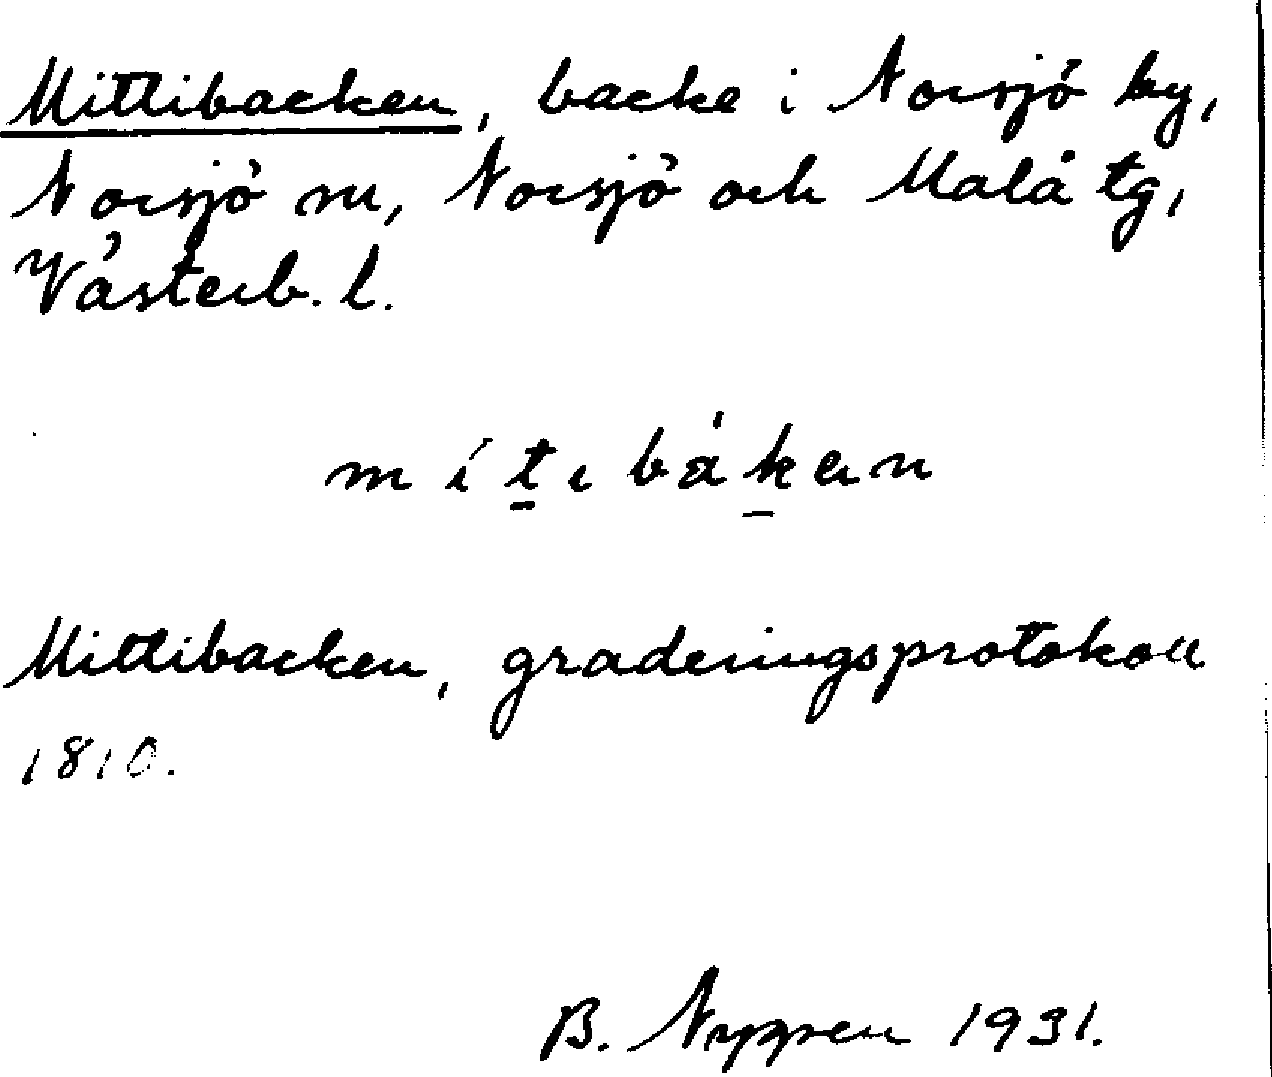 Mittibacken, backe i Norsjö by,
Norsjö sn, Norsjö och Malå tg,
Västerb. l.
mítιbákɐn
Mittibacken, graderingsprotokoll
1810.
B. 1931.